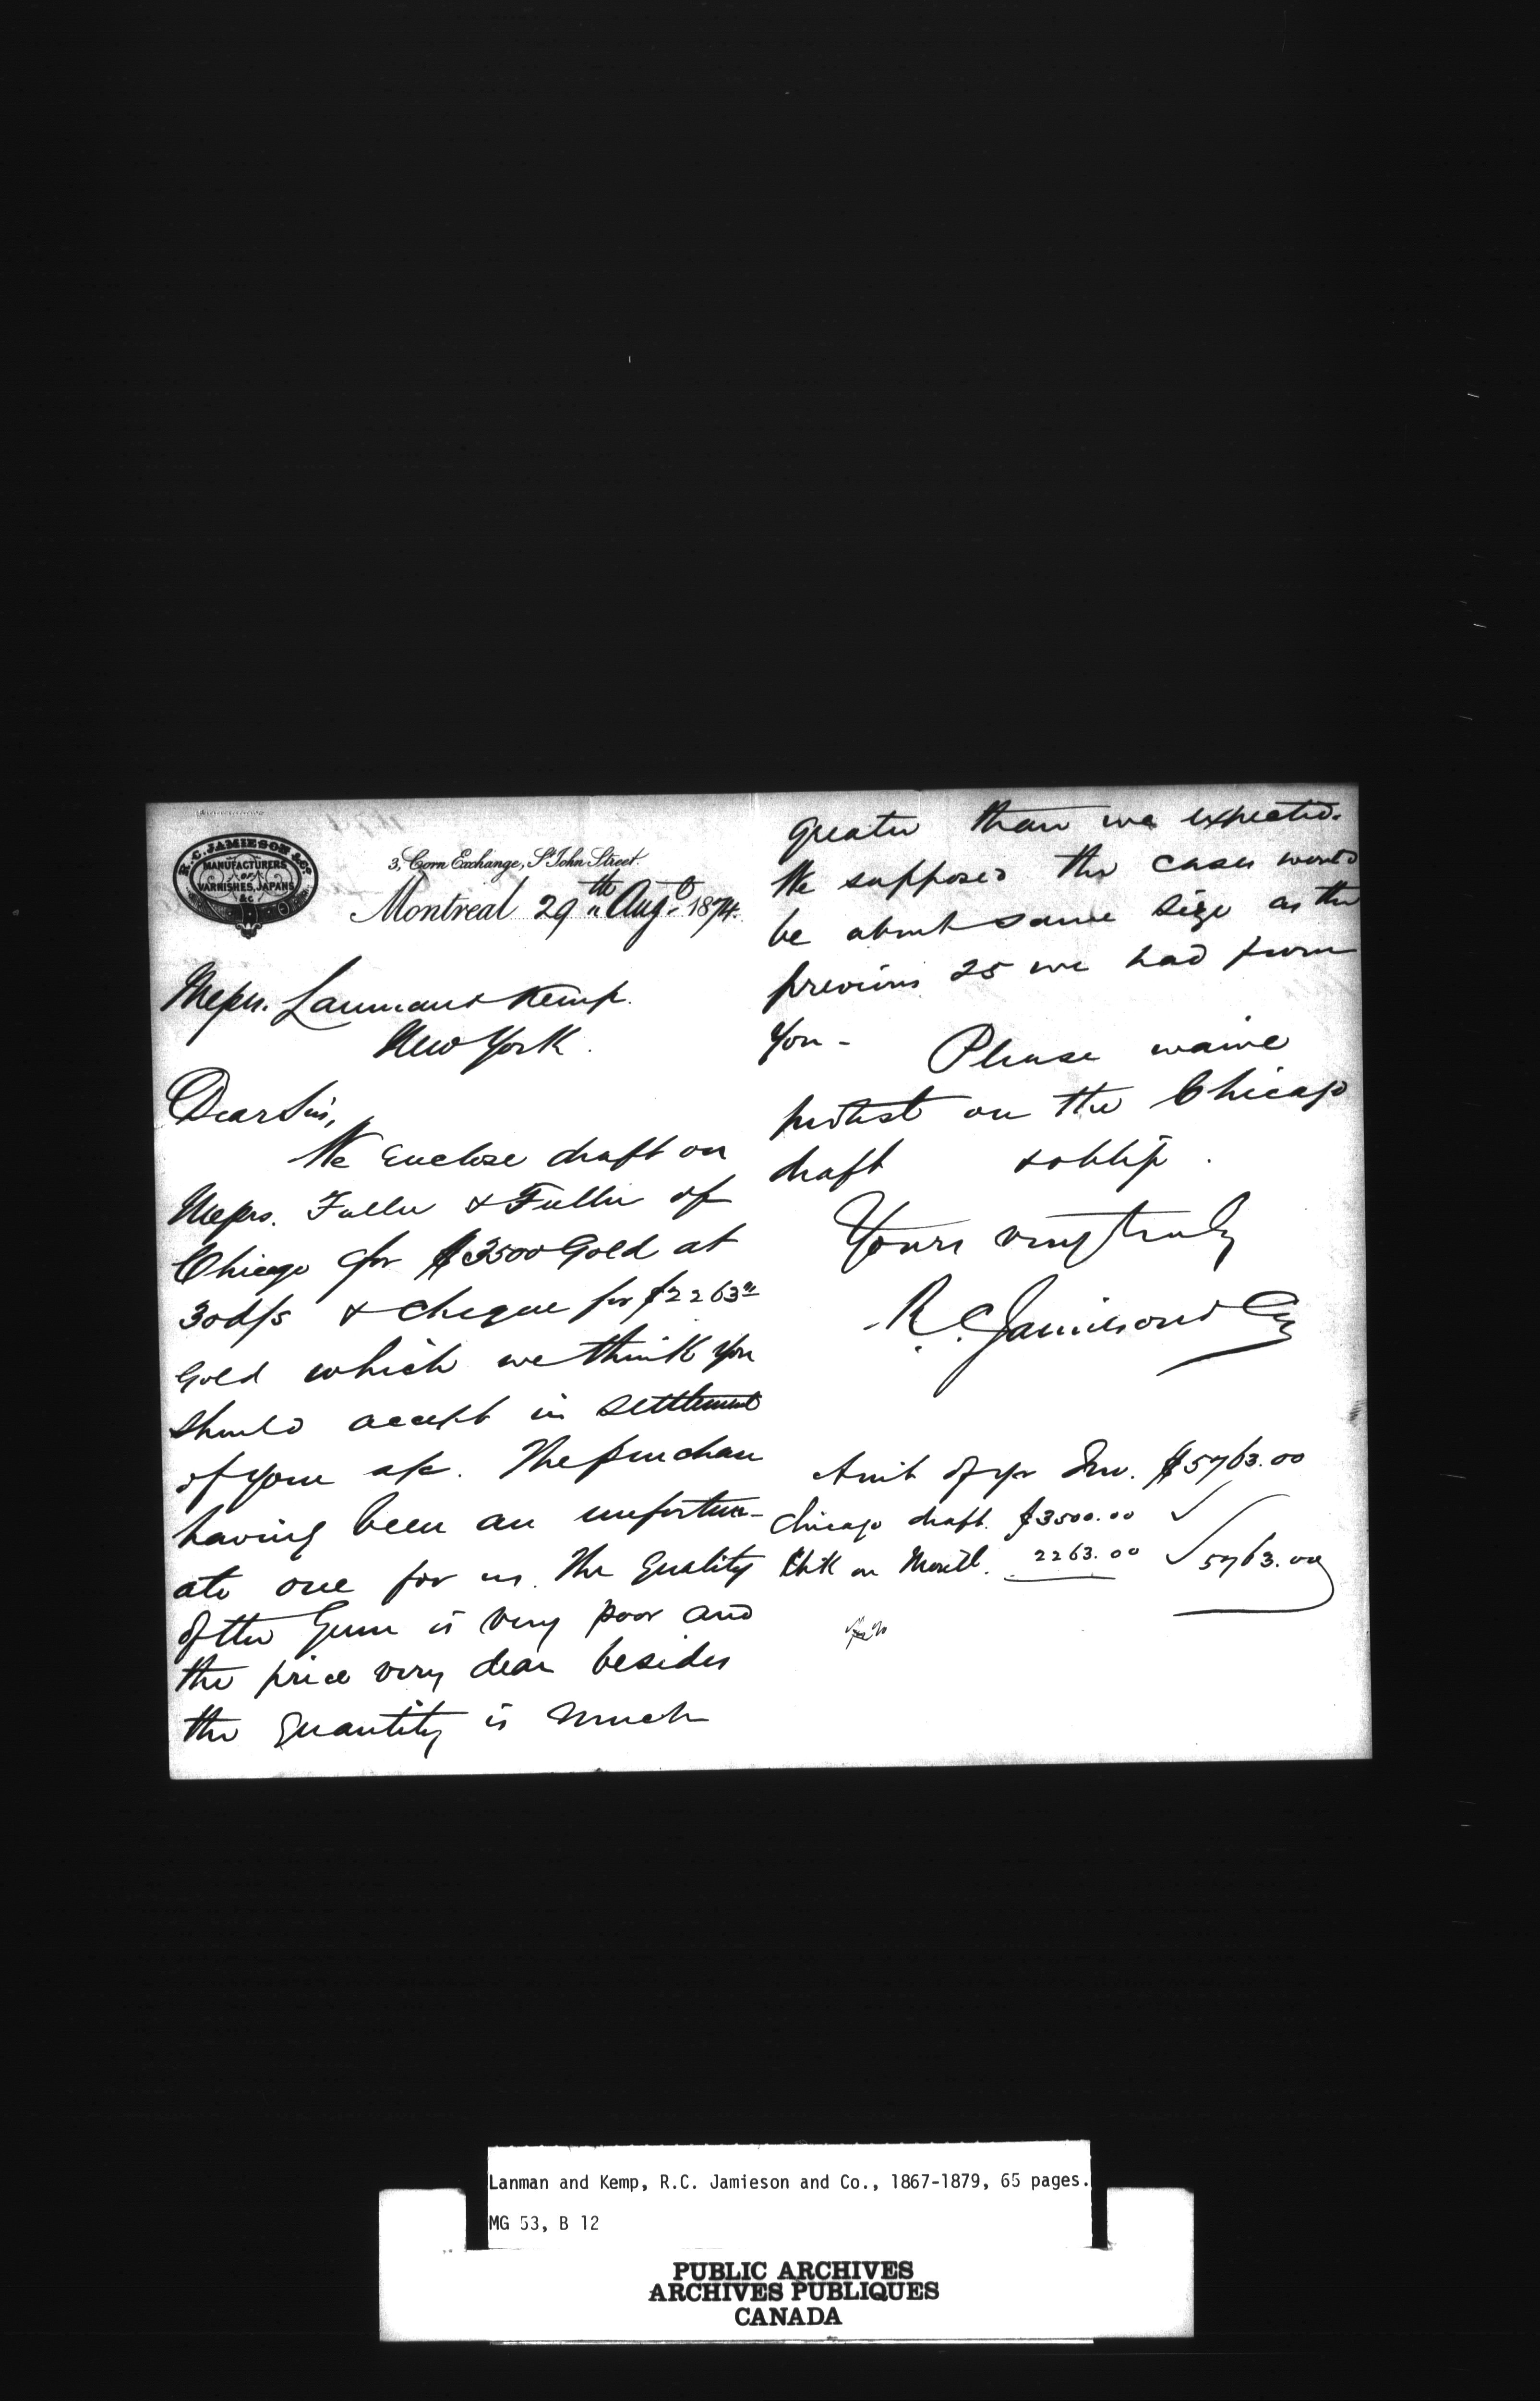 R. C. JAMIESON & CO.
MANUFACTURERS
OF
VARNISHES, JAPANS
&c
3, Corn Exchange, St John Street.
Montreal 29th Augt 1874.
Messrs. Lanman & Kemp.
New York.
Dear Sirs,
We enclose draft on
Messrs. Fuller & Fuller of
Chicago for $3500 Gold at
30 d/s & cheque for $2263
Gold which we think you
should accept in settlement
of your a/c. The purchase
having been an unfortun-
ate one for us. The quality
of the Gum is very poor and
the price very dear besides
the quantity is much
greater than we expected.
We supposed the cases would
be about same size as the
previous 25 we had from
you - Please waive
protest on the Chicago
draft & oblige.
Yours very truly
R. C. Jamieson & Co
Amt of yr Inv. $5763.00
Chicago draft. $3500.00
Chk on Montl. 2263.00 5763.00
Lanman and Kemp, R.C. Jamieson and Co., 1867-1879, 65 pages.
MG 53, B 12
PUBLIC ARCHIVES
ARCHIVES PUBLIQUES
CANADA